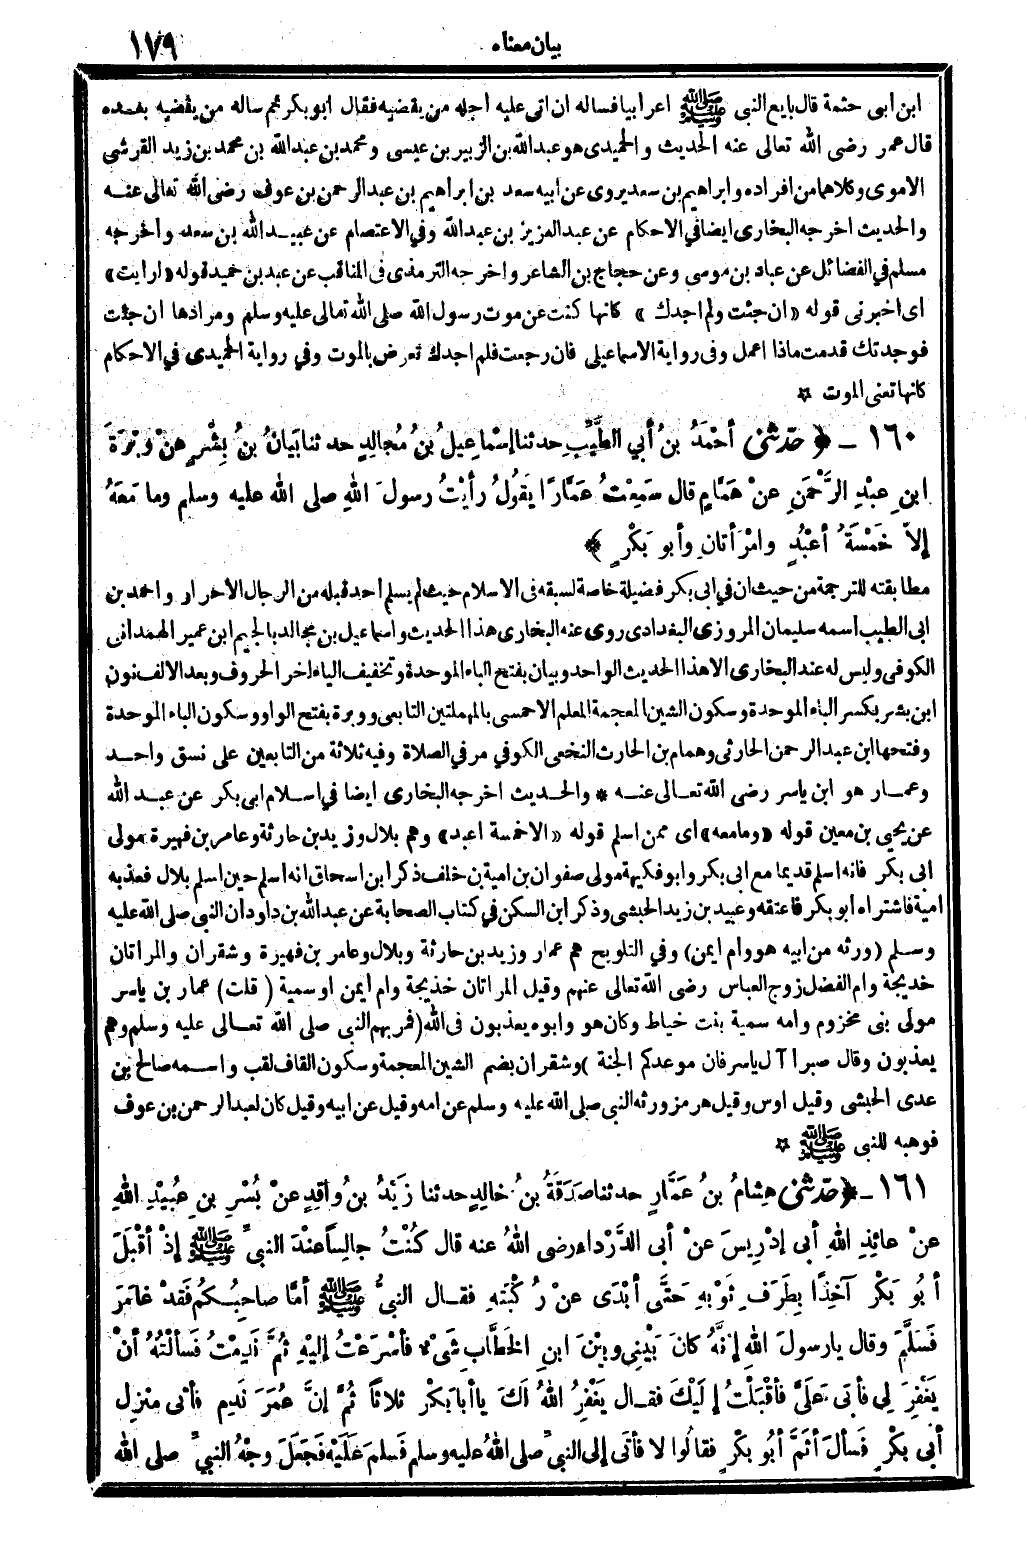 بيان معناه ١٧٩
ابن أبى حثمة قال بايع النبي ﷺ اعرابيا فساله ان اتى عليه اجله من يقضيه فقال ابو بكر ثم ساله من يقضيه بعده
قال عمر رضى الله تعالى عنه الحديث والحميدى هو عبدالله بن الزبير بن عيسى ومحمد بن عبدالله بن محمد بن زيد القرشى
الاموى وكلاهما من افراده وابراهيم بن سعد يروى عن ابيه سعد بن ابراهيم بن عبد الرحمن بن عوف رضى الله تعالى عنه
والحديث اخرجه البخارى ايضا في الاحكام عن عبد العزيز بن عبدالله وفي الاعتصام عن عبيد الله بن سعد واخرجه
مسلم في الفضائل عن عباد بن موسى وعن حجاج بن الشاعر واخرجه الترمذى فى المناقب عن عبد بن حميد قوله «ارايت»
اى اخبرنى قوله «ان جئت ولم اجدك» كانها كنت عن موت رسول الله صلى الله تعالى عليه وسلم ومرادها ان جئت
فوجدتك قدمت ماذا اعمل وفى رواية الاسماعيلى فان رجعت فلم اجدك تعرض بالموت وفي رواية الحميدى في الاحكام
كانها تعنى الموت ✩
١٦٠ ـ ﴿ حدثنى أَحْمَدُ بنُ أبي الطَّيِّبِ حدثنا إسْماعِيلُ بنُ مُجالِدٍ حدثنا بَيانُ بنُ بِشْرٍ عنْ وَبَرَةَ
ابنِ عبْدِ الرَّحْمَنِ عنْ هَمَّامٍ قال سَمِعْتُ عَمَّارًا يَقُولُ رأيْتُ رسولَ اللهِ صلى الله عليه وسلم وما مَعَهُ
إلاّ خَمْسَةُ أعْبُدٍ وامْرَأتانِ وأبو بَكْرٍ ﴾
مطابقته للترجمة من حيث ان في ابى بكر فضيلة خاصة لسبقه فى الاسلام حيث لم يسلم احد قبله من الرجال الاحرار واحمد بن
ابى الطيب اسمه سليمان المروزى البغدادى روى عنه البخارى هذا الحديث واسماعيل بن مجالد بالجيم ابن عمير الهمدانى
الكوفى وليس له عند البخارى الا هذا الحديث الواحد وبيان بفتح الباء الموحدة وتخفيف الياء اخر الحروف وبعد الالف نون
ابن بشر بكسر الباء الموحدة وسكون الشين المعجمة المعلم الاحمسى بالمهملتين التابعى ووبرة بفتح الواو وسكون الباء الموحدة
وفتحها ابن عبد الرحمن الحارثى وهمام بن الحارث النخعى الكوفي مر في الصلاة وفيه ثلاثة من التابعين على نسق واحد
وعمار هو ابن ياسر رضى الله تعالى عنه * والحديث اخرجه البخارى ايضا في اسلام ابى بكر عن عبد الله
عن يحيى بن معين قوله «وما معه» اى ممن اسلم قوله «الا خمسة اعبد» وهم بلال وزيد بن حارثة وعامر بن فهيرة مولى
ابى بكر فانه اسلم قديما مع ابى بكر وابو فكيهة مولى صفوان بن امية بن خلف ذكر ابن اسحاق انه اسلم حين اسلم بلال فعذبه
امية فاشتراه ابو بكر فاعتقه وعبيد بن زيد الحبشى وذكر ابن السكن في كتاب الصحابة عن عبدالله بن داود ان النبي صلى الله عليه
وسلم (ورثه من ابيه هو وام ايمن) وفي التلويح هم عمار وزيد بن حارثة وبلال وعامر بن فهيرة وشقران والمراتان
خديجة وام الفضل زوج العباس رضى الله تعالى عنهم وقيل المراتان خديجة وام ايمن او سمية (قلت) عمار بن ياسر
مولى بنى مخزوم وامه سمية بنت خياط وكان هو وابوه يعذبون فى الله (فمر بهم النبى صلى الله تعالى عليه وسلم وهم
يعذبون وقال صبرا آل ياسر فان موعدكم الجنة) وشقران بضم الشين المعجمة وسكون القاف لقب واسمه صالح بن
عدى الحبشى وقيل اوس وقيل هرمز ورثه النبي صلى الله عليه وسلم عن امه وقيل عن ابيه وقيل كان لعبد الرحمن بن عوف
فوهبه للنبى ﷺ ✩
١٦١ ـ ﴿ حدثنى هِشامُ بنُ عَمَّارٍ حدثنا صَدَقَةُ بنُ خالِدٍ حدثنا زَيْدُ بنُ واقِدٍ عنْ بُسْرِ بنِ عُبَيْدِ اللهِ
عنْ عائِذِ اللهِ أبى إدْرِيسَ عنْ أبى الدَّرْداءِ رضى اللهُ عنه قال كُنْتُ جالِساً عِنْدَ النبيِّ ﷺ إذْ أقْبَلَ
أبُو بَكْرٍ آخِذًا بِطَرَفِ ثَوْبِهِ حَتَّى أبْدَى عنْ رُكْبَتِهِ فقال النبيُّ ﷺ أمَّا صاحِبُكُمْ فَقَدْ غامَرَ
فَسَلَّمَ وقال يارسولَ اللهِ إنَّهُ كانَ بَيْنِي وبيْنَ ابنِ الخَطَّابِ شَىْءٌ فأسْرَعْتُ إليْهِ ثُمَّ نَدِمْتُ فَسألْتُهُ أنْ
يَغْفِرَ لِي فأبَى عَلَيَّ فأقْبَلْتُ إلَيْكَ فقال يَغْفِرُ اللهُ لَكَ يا أبا بَكْرٍ ثلاثاً ثُمَّ إنَّ عُمَرَ نَدِمَ فأتى منْزِلَ
أبى بكْرٍ فَسألَ أثَمَّ أبُو بكْرٍ فقالُوا لا فأتَى إلى النبيِّ صلى اللهُ عليه وسلم فَسلمَ عَلَيْهِ فَجَعَلَ وجْهُ النبيِّ صلى الله